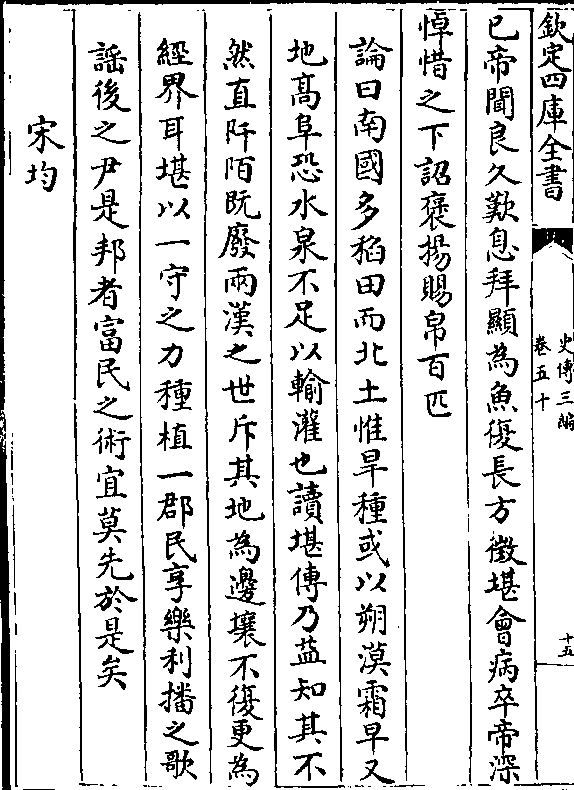 欽定四庫全書
史傳三編
卷五十
十五
已帝聞良久歎息拜顯為魚復長方徵堪會病卒帝深
悼惜之下詔褒揚賜帛百匹
論曰南國多稻田而北土惟旱種或以朔漠霜早又
地高阜恐水泉不足以輸灌也讀堪傳乃益知其不
然直阡陌既廢兩漢之世斥其地為邊壤不復更為
經界耳堪以一守之力種植一郡民享樂利播之歌
謡後之尹是邦者富民之術宜莫先於是矣
宋均